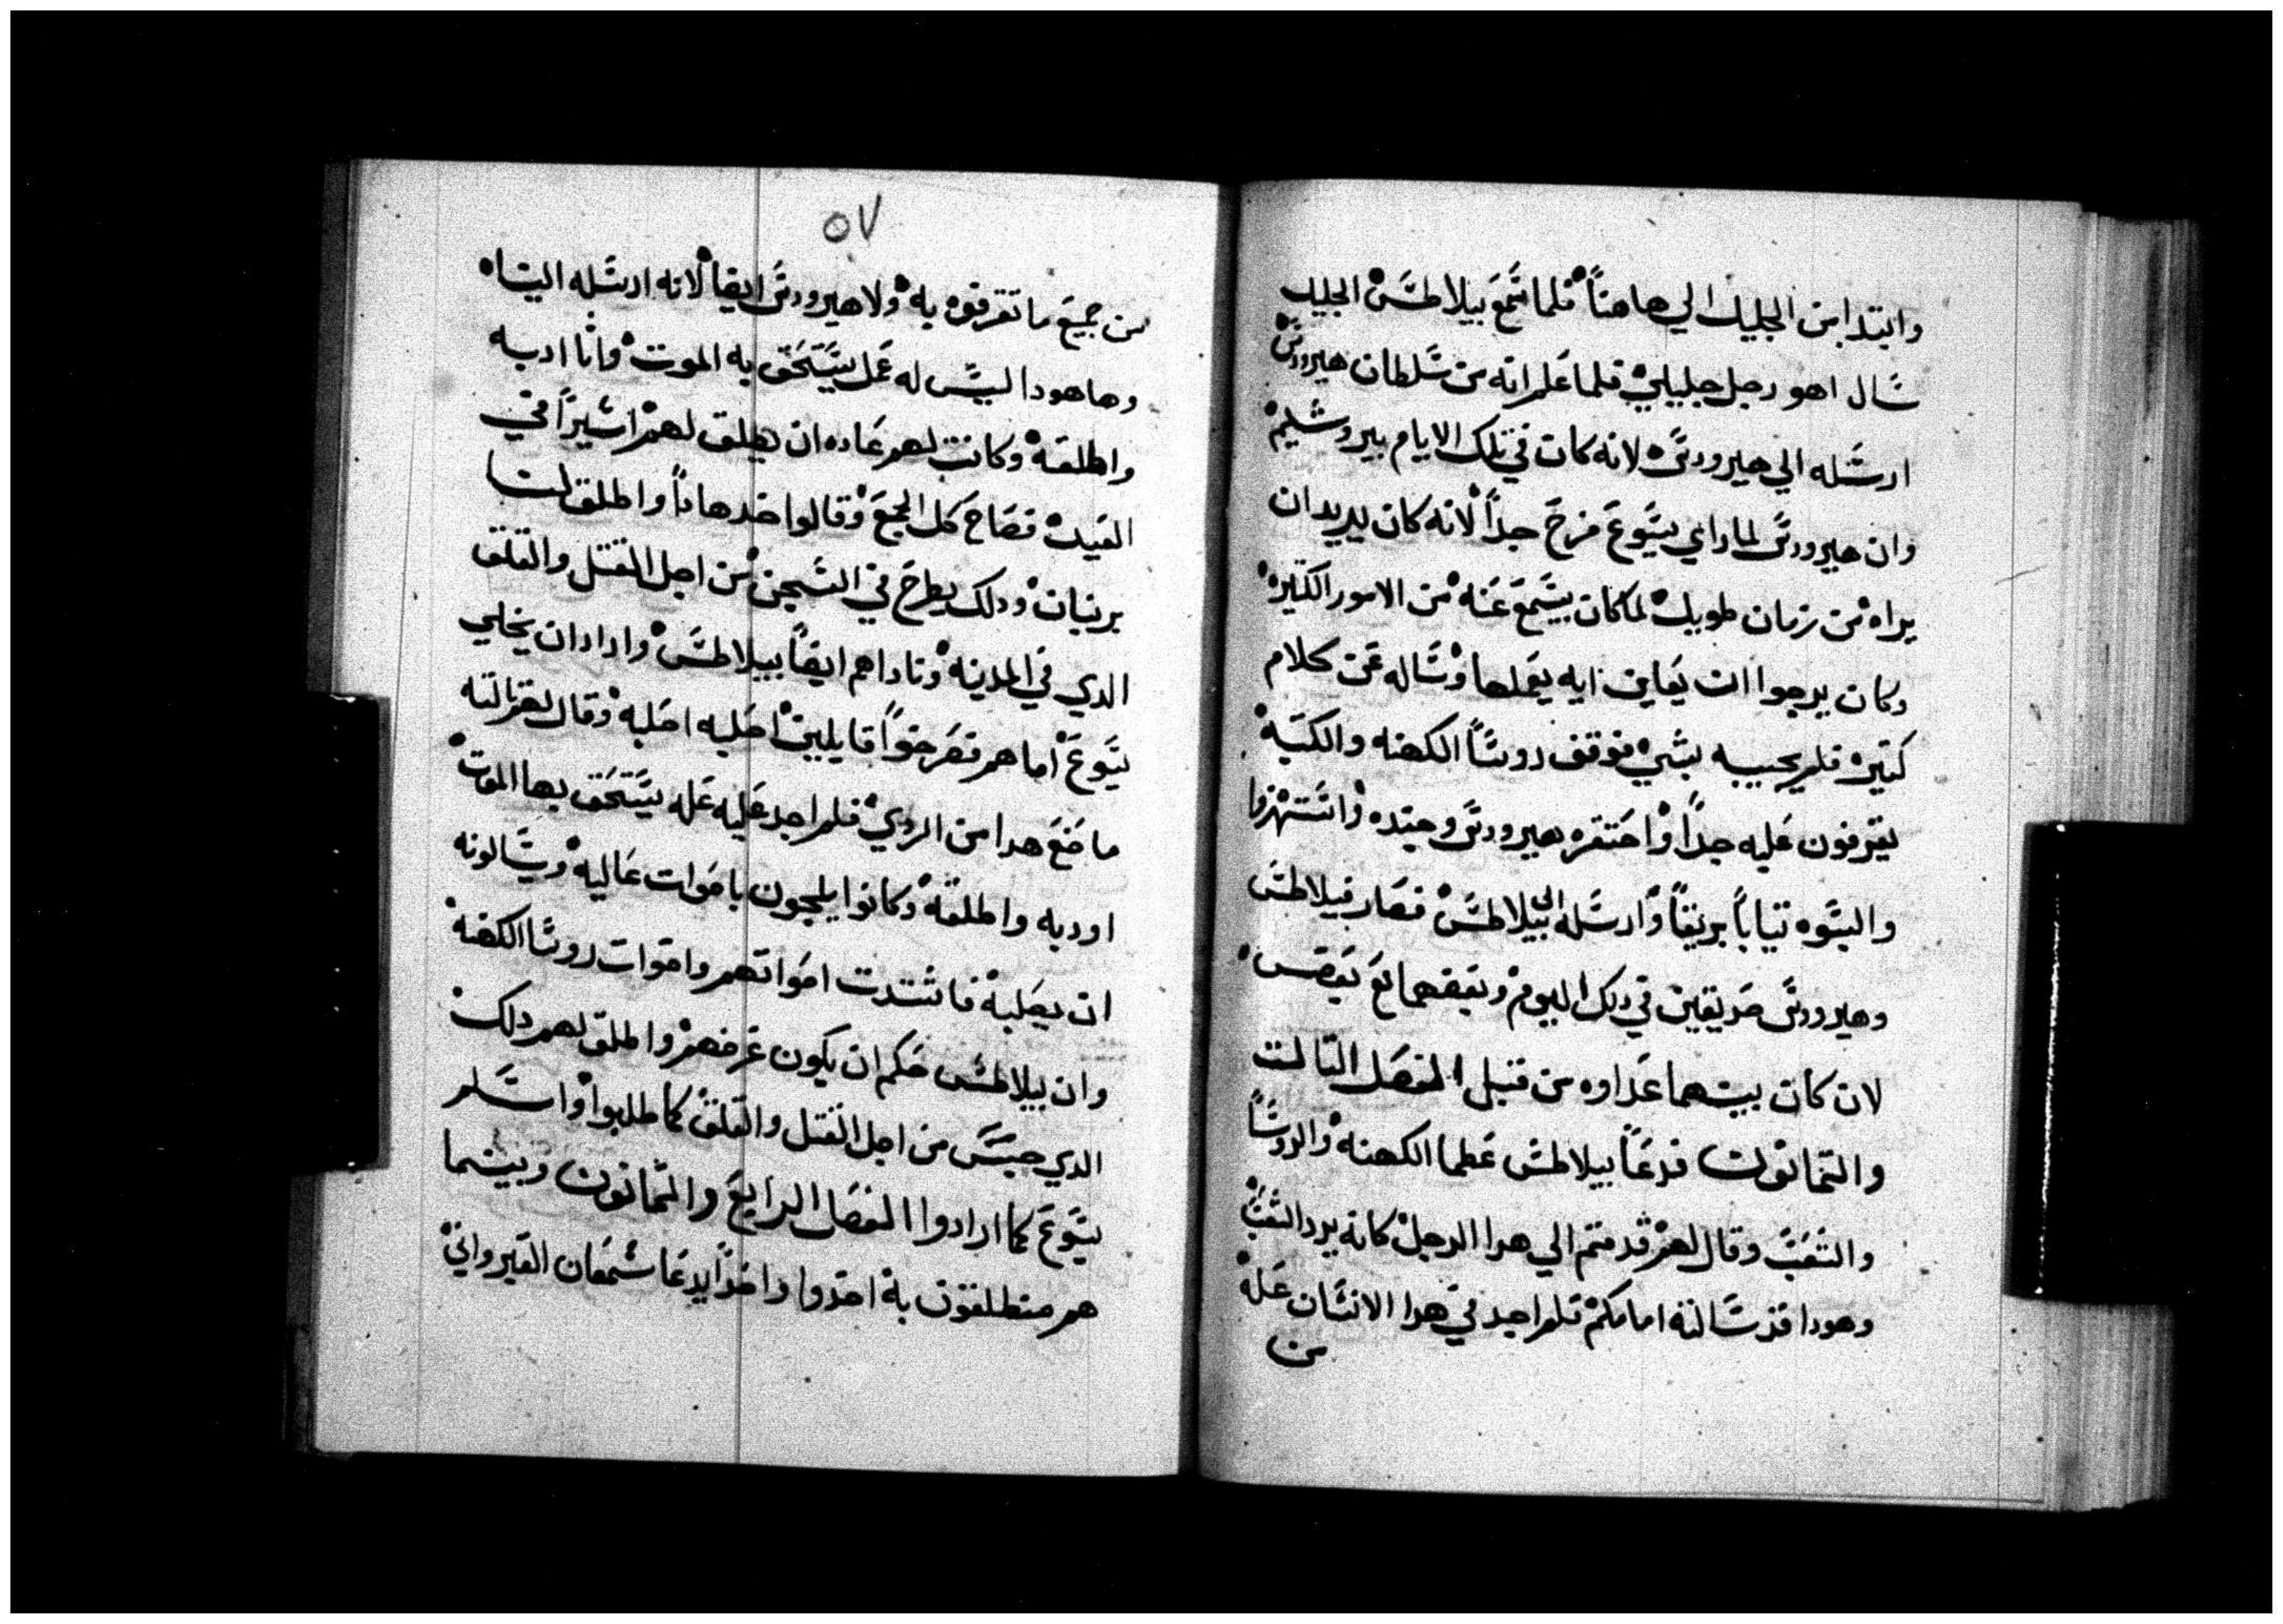 وابتدا من الجليل الي هاهنا فلما سمع بيلاطس الجليل
سال اهو رجل جليلي فلما علم انه من سلطان هيرودس
ارسله الي هيرودس لانه كان في تلك الايام بيروشليم
وان هيرودس لما راي يسوع فرح جداً لانه كان يريد ان
يراه من زمان طويل لما كان يسمع عنه من الامور الكتيره
وكان يرجوا ان يعاين ايه يعملها وساله عن كلام
كتير فلم يجيبه بشي فوقف روسا الكهنه والكتبه
يقرفون عليه جداً واحتقره هيرودس وجنده واستهزوا
والبسوه تياباً بريقاً وارسله الي بيلاطس فصار فيلاطس
وهيرودس صديقين في دلك اليوم وبعضهما مع بعض
لان كان بينهما عداوه من قبل الفصل التالت
والتمانون فدعا بيلاطس عظما الكهنه والروسا
والشعب وقال لهم قدمتم الي هدا الرجل كانه يرد الشعب
وهودا قد سالته امامكم فلم اجد في هدا الانسان عله
من
٥٧
من جميع ما تقرفوه به ولا هيرودس ايضا لانه ارسله الينا
وها هودا ليس له عمل يستحق به الموت وانا ادبه
واطلقه وكانت لهم عاده ان يطلق لهم اسيراً في
العيد فصاح كل الجمع وقالوا خد هاداً واطلق لنا
برنبان ودلك يطرح في السجن من اجل القتل والقلق
الدي في المدينه وناداهم ايضاً بيلاطس واراد ان يخلي
يسوع اما هم فصرخوا قايلين اصلبه اصلبه وقال لهم تالته
ما صنع هدا من الردي فلم اجد عليه عله يستحق بها الموت
اودبه واطلقه وكانوا يلجون باصوات عاليه ويسالونه
ان يصلبه فاشتدت اصواتهم واصوات روسا الكهنه
وان بيلاطس حكم ان يكون غرضهم واطلق لهم دلك
الدي حبس من اجل القتل والقلق كما طلبوا واسلم
يسوع كما ارادوا الفصل الرابع والتمانون وبينما
هم منطلقون به اخدوا واحداً يدعا سمعان القيرواني